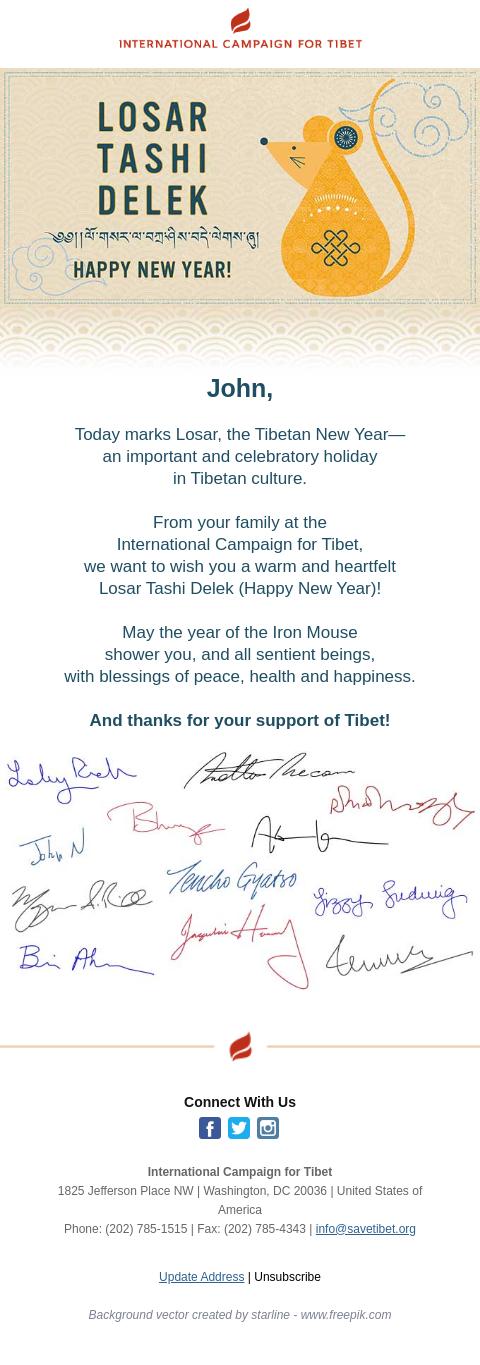 INTERNATIONAL CAMPAIGN FOR TIBET
LOSAR
TASHI
DELEK
༄༅།།ལོ་གསར་ལ་བཀྲ་ཤིས་བདེ་ལེགས་ཞུ།
HAPPY NEW YEAR!
John,
Today marks Losar, the Tibetan New Year—
an important and celebratory holiday
in Tibetan culture.
From your family at the
International Campaign for Tibet,
we want to wish you a warm and heartfelt
Losar Tashi Delek (Happy New Year)!
May the year of the Iron Mouse
shower you, and all sentient beings,
with blessings of peace, health and happiness.
And thanks for your support of Tibet!
Lesley Rich
John N
Tencho Gyatso
Connect With Us
International Campaign for Tibet
1825 Jefferson Place NW | Washington, DC 20036 | United States of
America
Phone: (202) 785-1515 | Fax: (202) 785-4343 | info@savetibet.org
Update Address | Unsubscribe
Background vector created by starline - www.freepik.com